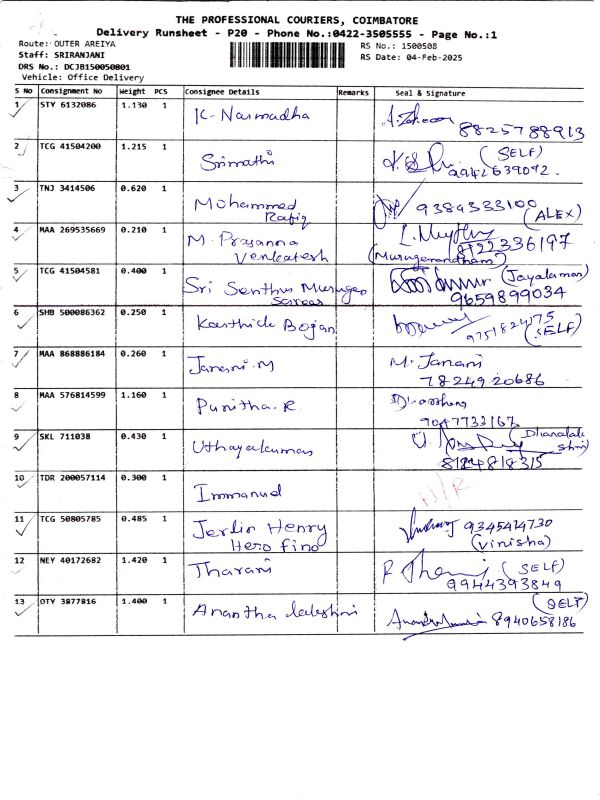 THE PROFESSIONAL COURIERS, COIMBATORE
Delivery Runsheet - P20 - Phone No.:0422-3505555 - Page No.:1
Route: OUTER AREIYA
RS No.: 1500508
Staff: SRIRANJANI
RS Date: 04-Feb-2025
DRS No.: DCJB150050801
Vehicle: Office Delivery
S No Consignment No Weight PCS Consignee Details Remarks Seal & Signature
1 STY 6132086 1.130 1 K. Narmadha 8825788913
2 TCG 41504200 1.215 1 Srimathi (SELF)
9942639092.
3 TNJ 3414506 0.620 1 Mohammed Rafiq 9384333100 (ALEX)
4 MAA 269535669 0.210 1 M. Prasanna Venkatesh 8122336197
(Muruganandham)
5 TCG 41504581 0.400 1 Sri Senthur Murugan (Jayakumar)
9659899034
6 SHB 500086362 0.250 1 Karthick Bojan 9751824175
(SELF)
7 MAA 868886184 0.260 1 Janani. M M. Janani
7824920686
8 MAA 576814599 1.160 1 Punitha. R
9047733167
9 SKL 711038 0.430 1 Uthayakumar (Dhanalakshmi)
8124818315
10 TDR 200057114 0.300 1 Immanuel N/R
11 TCG 50805785 0.485 1 Jerlin Henry 9345414730
Hero fino (Vinisha)
12 NEY 40172682 1.420 1 Tharani (SELF)
9944393849
13 OTY 3877816 1.400 1 Anantha lakshmi (SELF)
8940658186